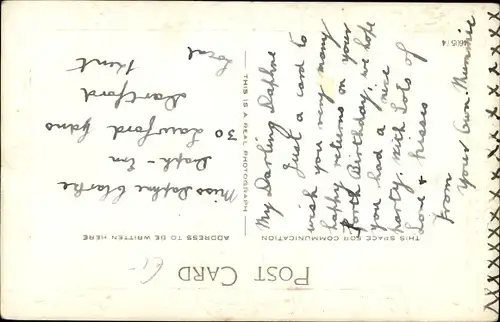 POST CARD
THIS SPACE FOR COMMUNICATION
ADDRESS TO BE WRITTEN HERE
THIS IS A REAL PHOTOGRAPH
My Darling Daphne
Just a card to
wish you very many
happy returns on your
forth Birthday, we hope
you had a nice
party. With Lots of
Love & kisses
From
Your Own Mummie
XXXXXXXXXXXXXXXXXXXX
Miss Daphne Clarke
Daph-Enn
30 Lawford Gdns
Dartford
Kent
Local